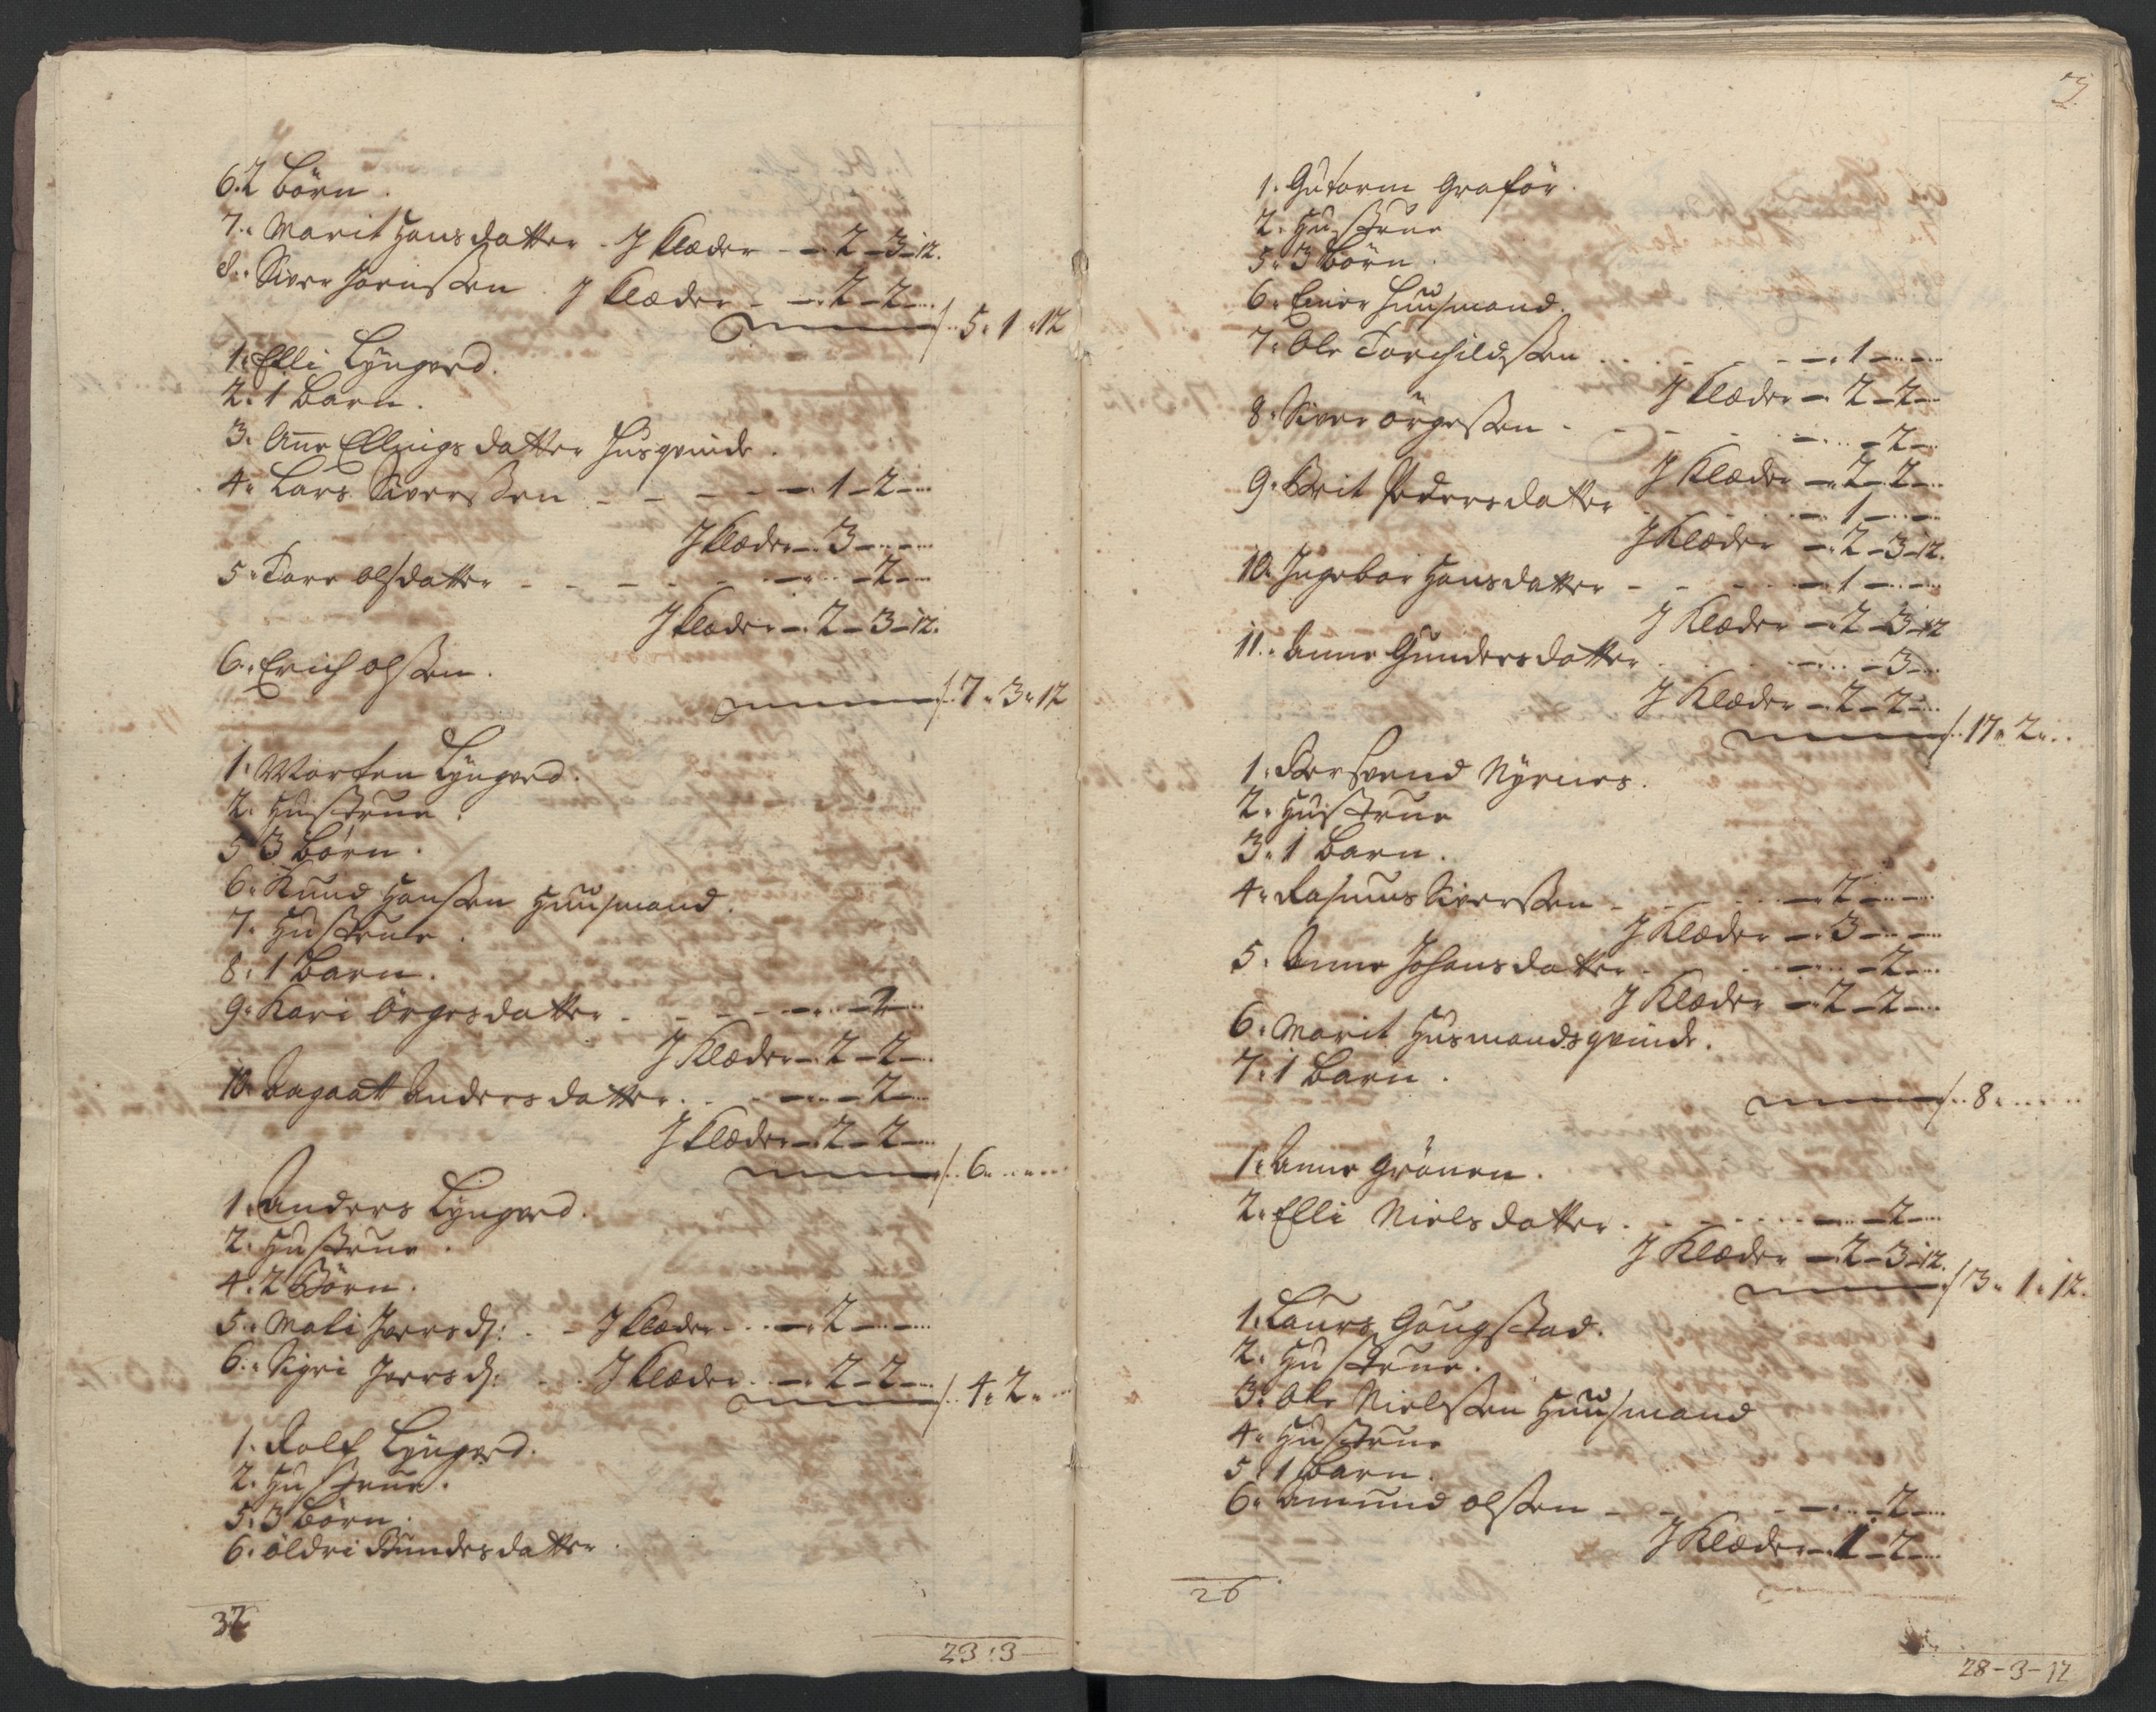 6. 2 börn.
7. Marit Hansdatter - J Klæder - - 2 - 3 - 12.
8. Siver Joenssen. J Klæder - - 2 - 2 -
5. 1. 12
1. Elli Lÿngved.
2. 1 barn.
3. Ane Ellingsdatter Husqvinde.
4. Lars Siverssen - - - - 1 - 2 -
J Klæder - 3 -
5. Tore olsdatter - - - - 2 -
J Klæder - 2 - 3 - 12.
6. Erich olssen.
7. 3. 12
1. Morten Lÿngved.
2. Hustrue.
5 3 börn.
6. Knud Hanssen Huusmand.
7. Hustrue.
8. 1 barn.
9. Kari Örgesdatter - - - - 2 -
J Klæder - 2 - 2 -
10. Dagaatt Andersdatter. - - 2 -
J Klæder - 2 - 2 -
6.
1. Anders Lÿngved.
2. Hustrue.
4. 2 Börn.
5. Mali Joersd: - J Klæder - - 2 -
6. Sigri Joersd: - J Klæder - - 2 - 2 -
4. 2.
1. Rolf Lÿngved.
2. Hustrue.
5. 3 börn.
6. öldri Amundesdatter.
32
23 : 3 -
3
1. Gutorm Graför.
2. Hustrue
5. 3 börn.
6. Einer Huusmand.
7. Ole Torchildssen - - - 1 -
J Klæder - 2 - 2 -
8. Siver örgessen - - - - 2 -
J Klæder - 2 - 2 -
9. Berit Pedersdatter - - 1 -
J Klæder - 2 - 3 - 12.
10. Ingebor Hansdatter - - - 1 -
J Klæder - 2 - 3 - 12
11. Anne Gundersdatter - - 3 -
J Klæder - 2 - 2 -
17. 2.
1. Bersvend Nÿrnes.
2. Hustrue
3. 1 barn.
4. Rasmus Siverssen - - 2 -
J Klæder - 3 -
5. Anne Johansdatter - - 2 -
J Klæder - 2 - 2 -
6. Marit Husmandsqvinde.
7. 1 barn.
8.
1. Anne Grönen.
2. Elli Nielsdatter - - - 2 -
J Klæder - 2 - 3 - 12.
3. 1. 12.
1. Laurs Gaugstad.
2. Hustrue.
3. Ole Nielssen Huusmand
4. Hustrue
5. 1 barn.
6. Amund olssen - - - - 2 -
J Klæder - 1 - 2 -
26
28 - 3 - 12